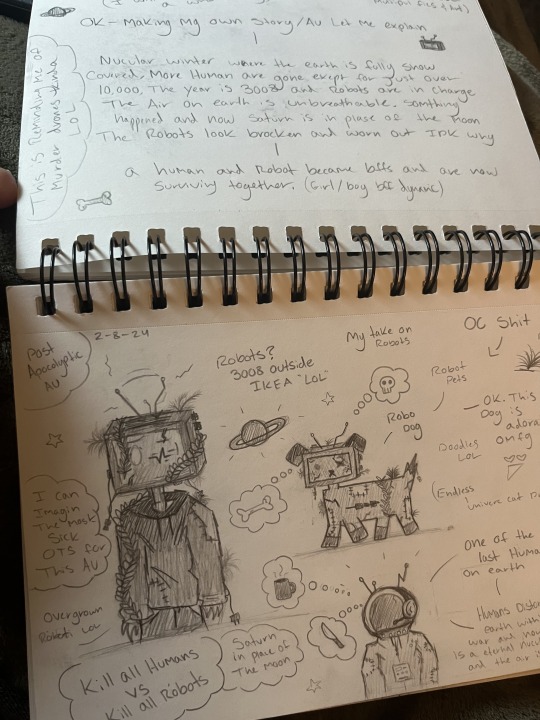 OK - Making My own Story/AU Let Me explain
Nucular winter where the earth is fully snow
Covered. More Human are gone exept for just over
10,000. The year is 3008 and Robots are in charge
The Air on earth is unbreathable. Somthing
happened and now Saturn is in plase of the Moon
The Robots look brocken and worn out IDK why
a human and Robot became bffs and are now
Surviving together. (Girl/boy bff dynamic)
This is Reminding me of
Murder drones kinda
LOL
2-8-24
Post
Apocalyptic
AU
Robots?
3008 outside
IKEA "LOL"
My take on
Robots
OC Shit
Robot
Pets
Robo
Dog
OK. This
Dog is
adora
omfg
Doodles
LOL
(Endless
I can
Imagin
The most
Sick
OTS for
This AU
Overgrown
Robots LOL
Kill all Humans
VS
Kill all Robots
Saturn
in place of
The Moon
one of the
last Human
on earth
Humans
Earth with
war and now
is a eternal
and the air is